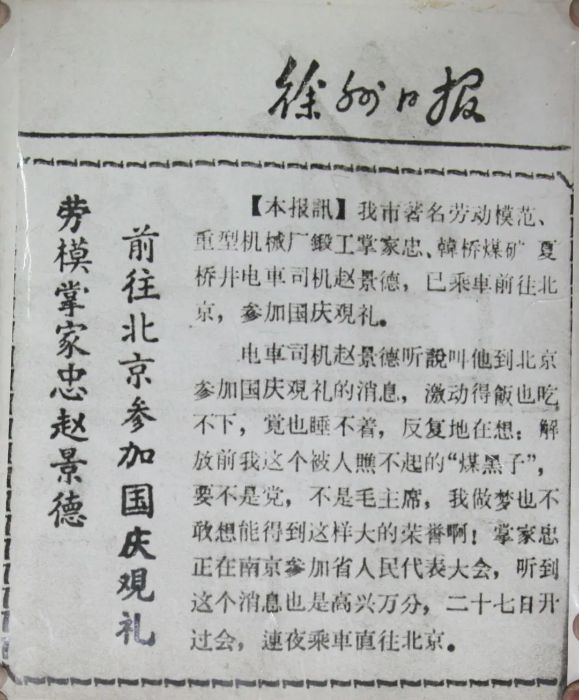 徐州日报
劳模掌家忠赵景德
前往北京参加国庆观礼
【本报訊】我市著名劳动模范、
重型机械厂鍛工掌家忠、韓桥煤矿夏
桥井电車司机赵景德，已乘車前往北
京，参加国庆观礼。
电車司机赵景德听說叫他到北京
参加国庆观礼的消息，激动得飯也吃
不下，覚也睡不着，反复地在想：解
放前我这个被人瞧不起的“煤黑子”，
要不是党，不是毛主席，我做梦也不
敢想能得到这样大的荣誉啊！掌家忠
正在南京参加省人民代表大会，听到
这个消息也是高兴万分，二十七日开
过会，連夜乘車直往北京。